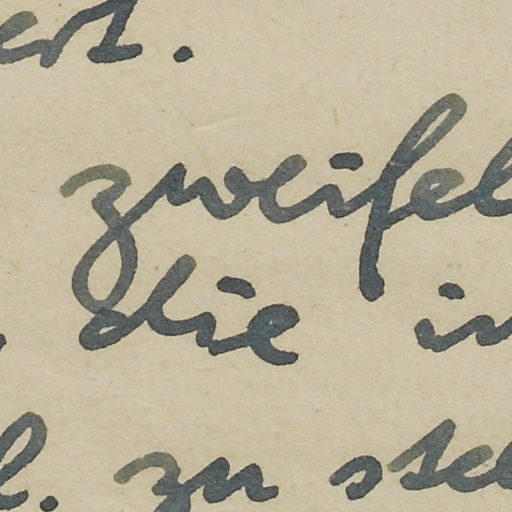 ert.
zweifel
die in
l. zu stel